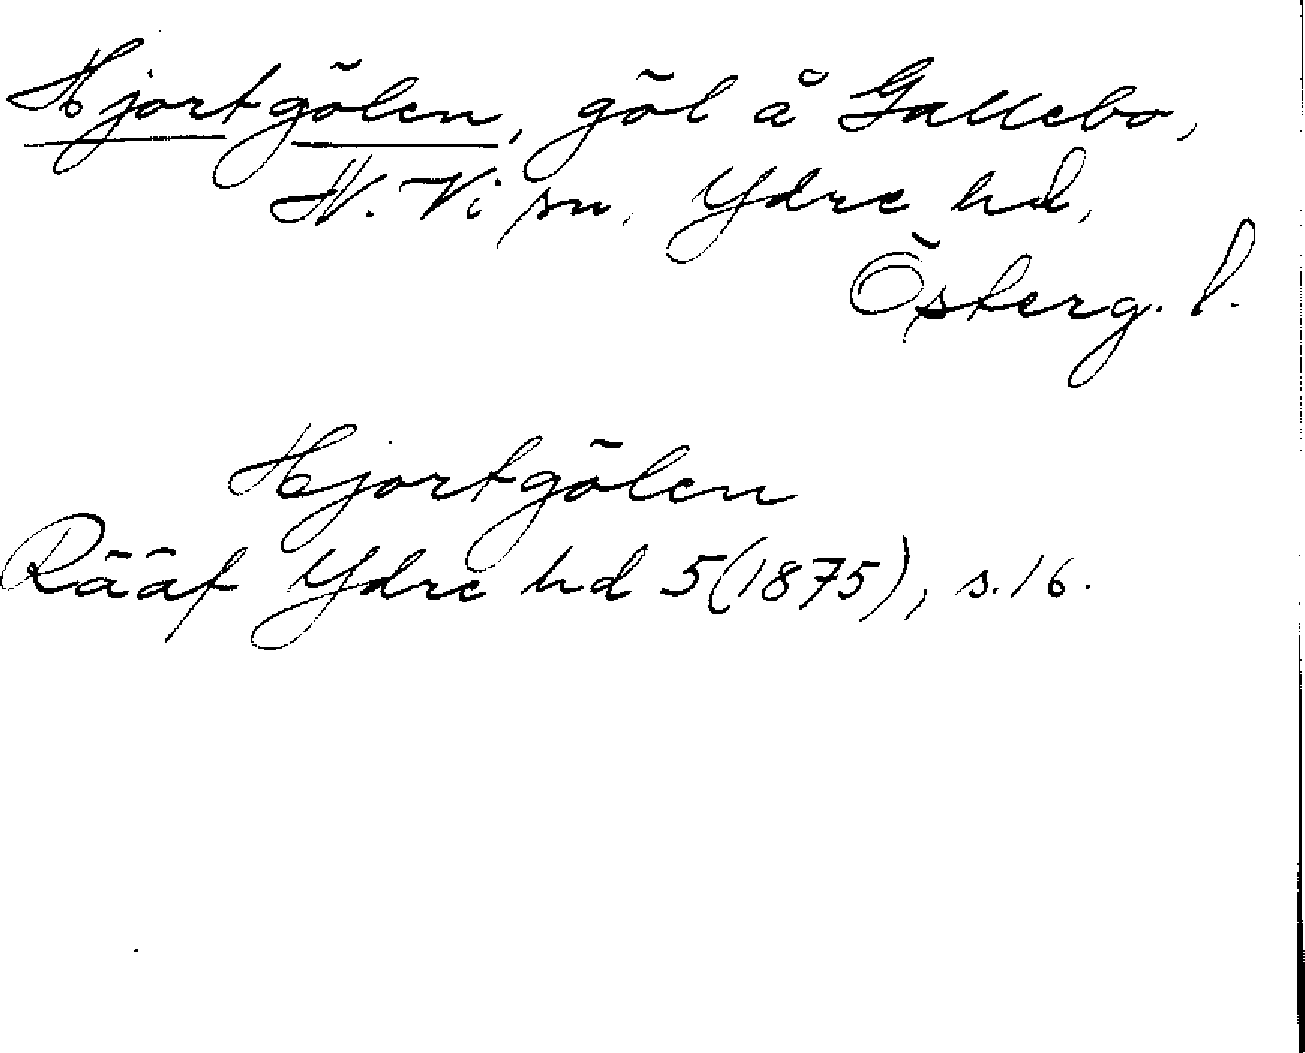 Hjortgölen, göl å Gallebo,
N. Vi sn, Ydre hd,
Österg. l.
Hjortgölen
Rääf Ydre hd 5(1875), s. 16.